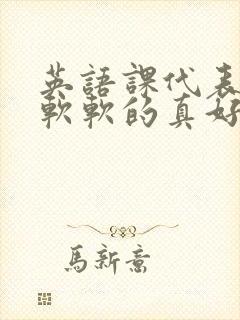 英語課代表
軟軟的真好
馬新意